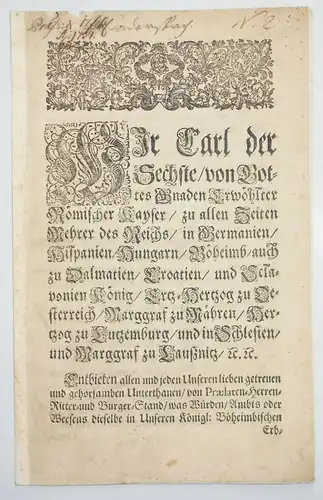 N. 2.
Wir Carl der
Sechste/ von Got-
tes Gnaden Erwöhlter
Römischer Kayser/ zu allen Zeiten
Mehrer des Reichs/ in Germanien/
Hispanien/ Hungarn/ Böheimb/ auch
zu Dalmatien/ Croatien/ und Scla-
vonien König/ Ertz-Hertzog zu Oe-
sterreich/ Marggraf zu Mähren/ Her-
tzog zu Lutzemburg/ und in Schlesien/
und Marggraf zu Laußnitz/ &c. &c.
Entbieten allen und jeden Unseren lieben getreuen
und gehorsamben Unterthanen/ von Prælaten-Herren-
Ritter-und Burger-Stand/ was Würden/ Ambts oder
Weesens dieselbe in Unseren Königl: Böheimbischen
Erb-